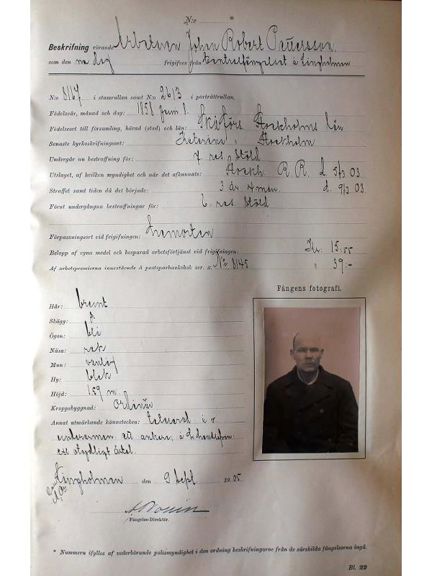 N:r *
Beskrifning rörande Arbetaren Johan Robert Pettersson,
som den na dag frigifves från Centralfängelset å Långholmen.
N:r 8167 i stamrullan samt N:r 2613 i porträttrullan.
Födelseår, månad och dag: 1858 Juni 1.
Födelseort till församling, härad (stad) och län: Stockholms län
Senaste kyrkoskrifningsort: Stockholm
Undergår nu bestraffning för: 7 resan stöld
Utslaget, af hvilken myndighet och när det afkunnats: Stock. R. R. d. 5/3 03
Straffet samt tiden då det började: 3 år 4 mån. d. 9/3 03.
Förut undergångna bestraffningar för: 6. res. stöld
Förpassningsort vid frigifningen:
Belopp af egna medel och besparad arbetsförtjänst vid frigifningen. Kr. 15:
Af arbetspremierna innestående å postsparbanksbok ser. N:o 8145 " 39:-
Fångens fotografi.
Hår: brunt
Skägg:
Ögon: blå
Näsa: rak
Mun: vanlig
Hy: blek
Höjd: 159 m.
Kroppsbyggnad: ordinär
Annat utmärkande kännetecken: tatuerad i v
underarmen ett ankare, å
ett otydligt
Långholmen den 9 Sept. 1905.
Fängelse-Direktör.
* Nummern ifylles af vederbörande polismyndighet i den ordning beskrifningarne från de särskilda fängelserna ingå.
Bl. 29